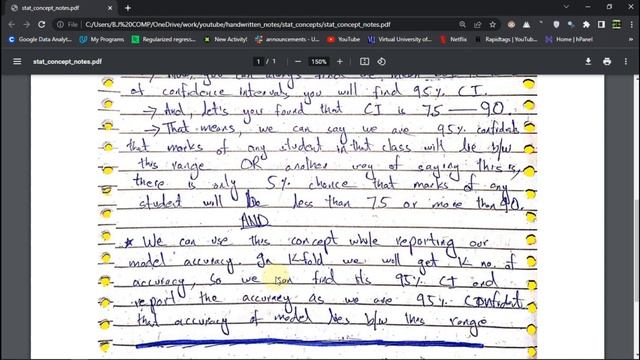 stat_concept_notes.pdf
C:/Users/BJ%20COMP/OneDrive/work/youtube/handwritten_notes/stat_concepts/stat_concept_notes.pdf
Google Data Analyti... My Programs Regularized regress... announcements - Q... Virtual University of... Netflix Rapidtags | YouTub... Dashboard | hPanel
stat_concept_notes.pdf 1 / 1 150%
of confidence intervals you will find 95% CI.
→ And, let's you found that CI is 75 — 90.
→ That means, we can say we are 95% confident
that marks of any student in that class will lie b/w
this range OR another way of saying this is,
there is only 5% chance that marks of any
student will be less than 75 or more than 90.
AND
* We can use this concept while reporting our
model accuracy. In K-fold we will get K no. of
accuracy, so we can find its 95% CI and
report the accuracy as we are 95% confident
that accuracy of model lies b/w this range